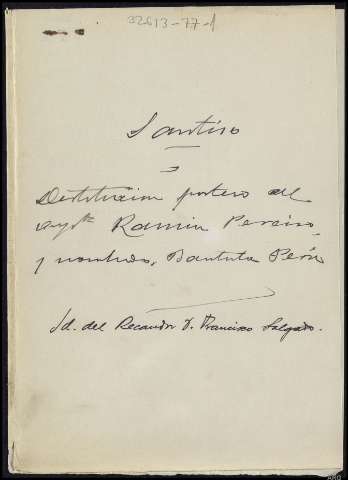 32613-77-1
Santiso
Destitucion portero del
Aytº Ramon Pereiro,
y nombrdo, Bautista Perón
Id. del Recaudor D. Francisco Salgado.
ARG